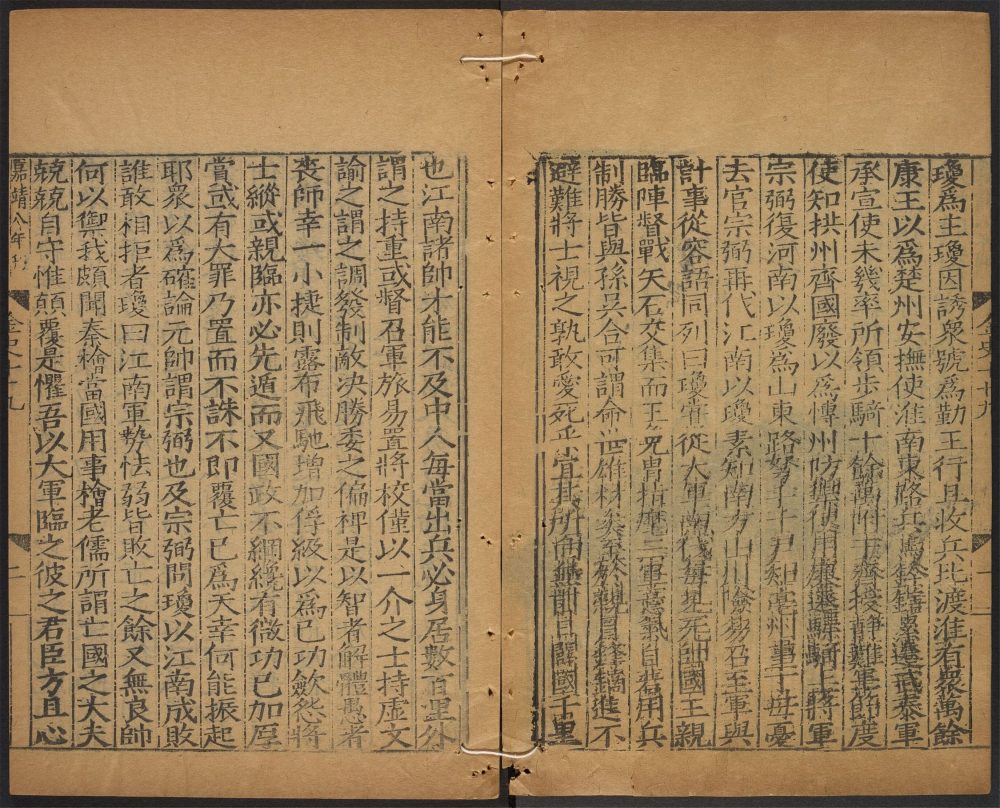 瓊為主瓊因誘衆號為勤王行且收兵北渡淮有衆萬餘
康王以為楚州安撫使淮南東路兵馬鈐轄累遷武泰軍
承宣使未幾率所領步騎十餘萬附于齊授靜難軍節度
使知拱州齊國廢以為博州防禦使用廉遷驃騎上將軍
宗弼復河南以瓊為山東路弩手千户知亳州事丁母憂
去官宗弼再代江南以瓊素知南方山川險易召至軍與
計事從容語同列曰瓊嘗從大軍南伐每見元帥國王親
臨陣督戰矢石交集而王免胄指麾三軍意氣自若用兵
制勝皆與孫吳合可謂命世雄材矣至於親冒鋒鏑進不
避難將士視之孰敢愛死乎宜其所向無前日闢國千里
金史 七十九
一
也江南諸帥才能不及中人每當出兵必身居數百里外
謂之持重或督召軍旅易置將校僅以一介之士持虚文
諭之謂之調發制敵決勝委之偏裨是以智者解體愚者
喪師幸一小捷則露布飛馳增加俘級以為己功歛怨將
士縱或親臨亦必先遁而又國政不綱纔有微功已加厚
賞或有大罪乃置而不誅不即覆亡已為天幸何能振起
耶衆以為確論元帥謂宗弼也及宗弼問瓊以江南成敗
誰敢相拒者瓊曰江南軍勢怯弱皆敗亡之餘又無良帥
何以禦我頗聞秦檜當國用事檜老儒所謂亡國之大夫
兢兢自守惟顛覆是懼吾以大軍臨之彼之君臣方且心
嘉靖八年刊
金史七十九
二